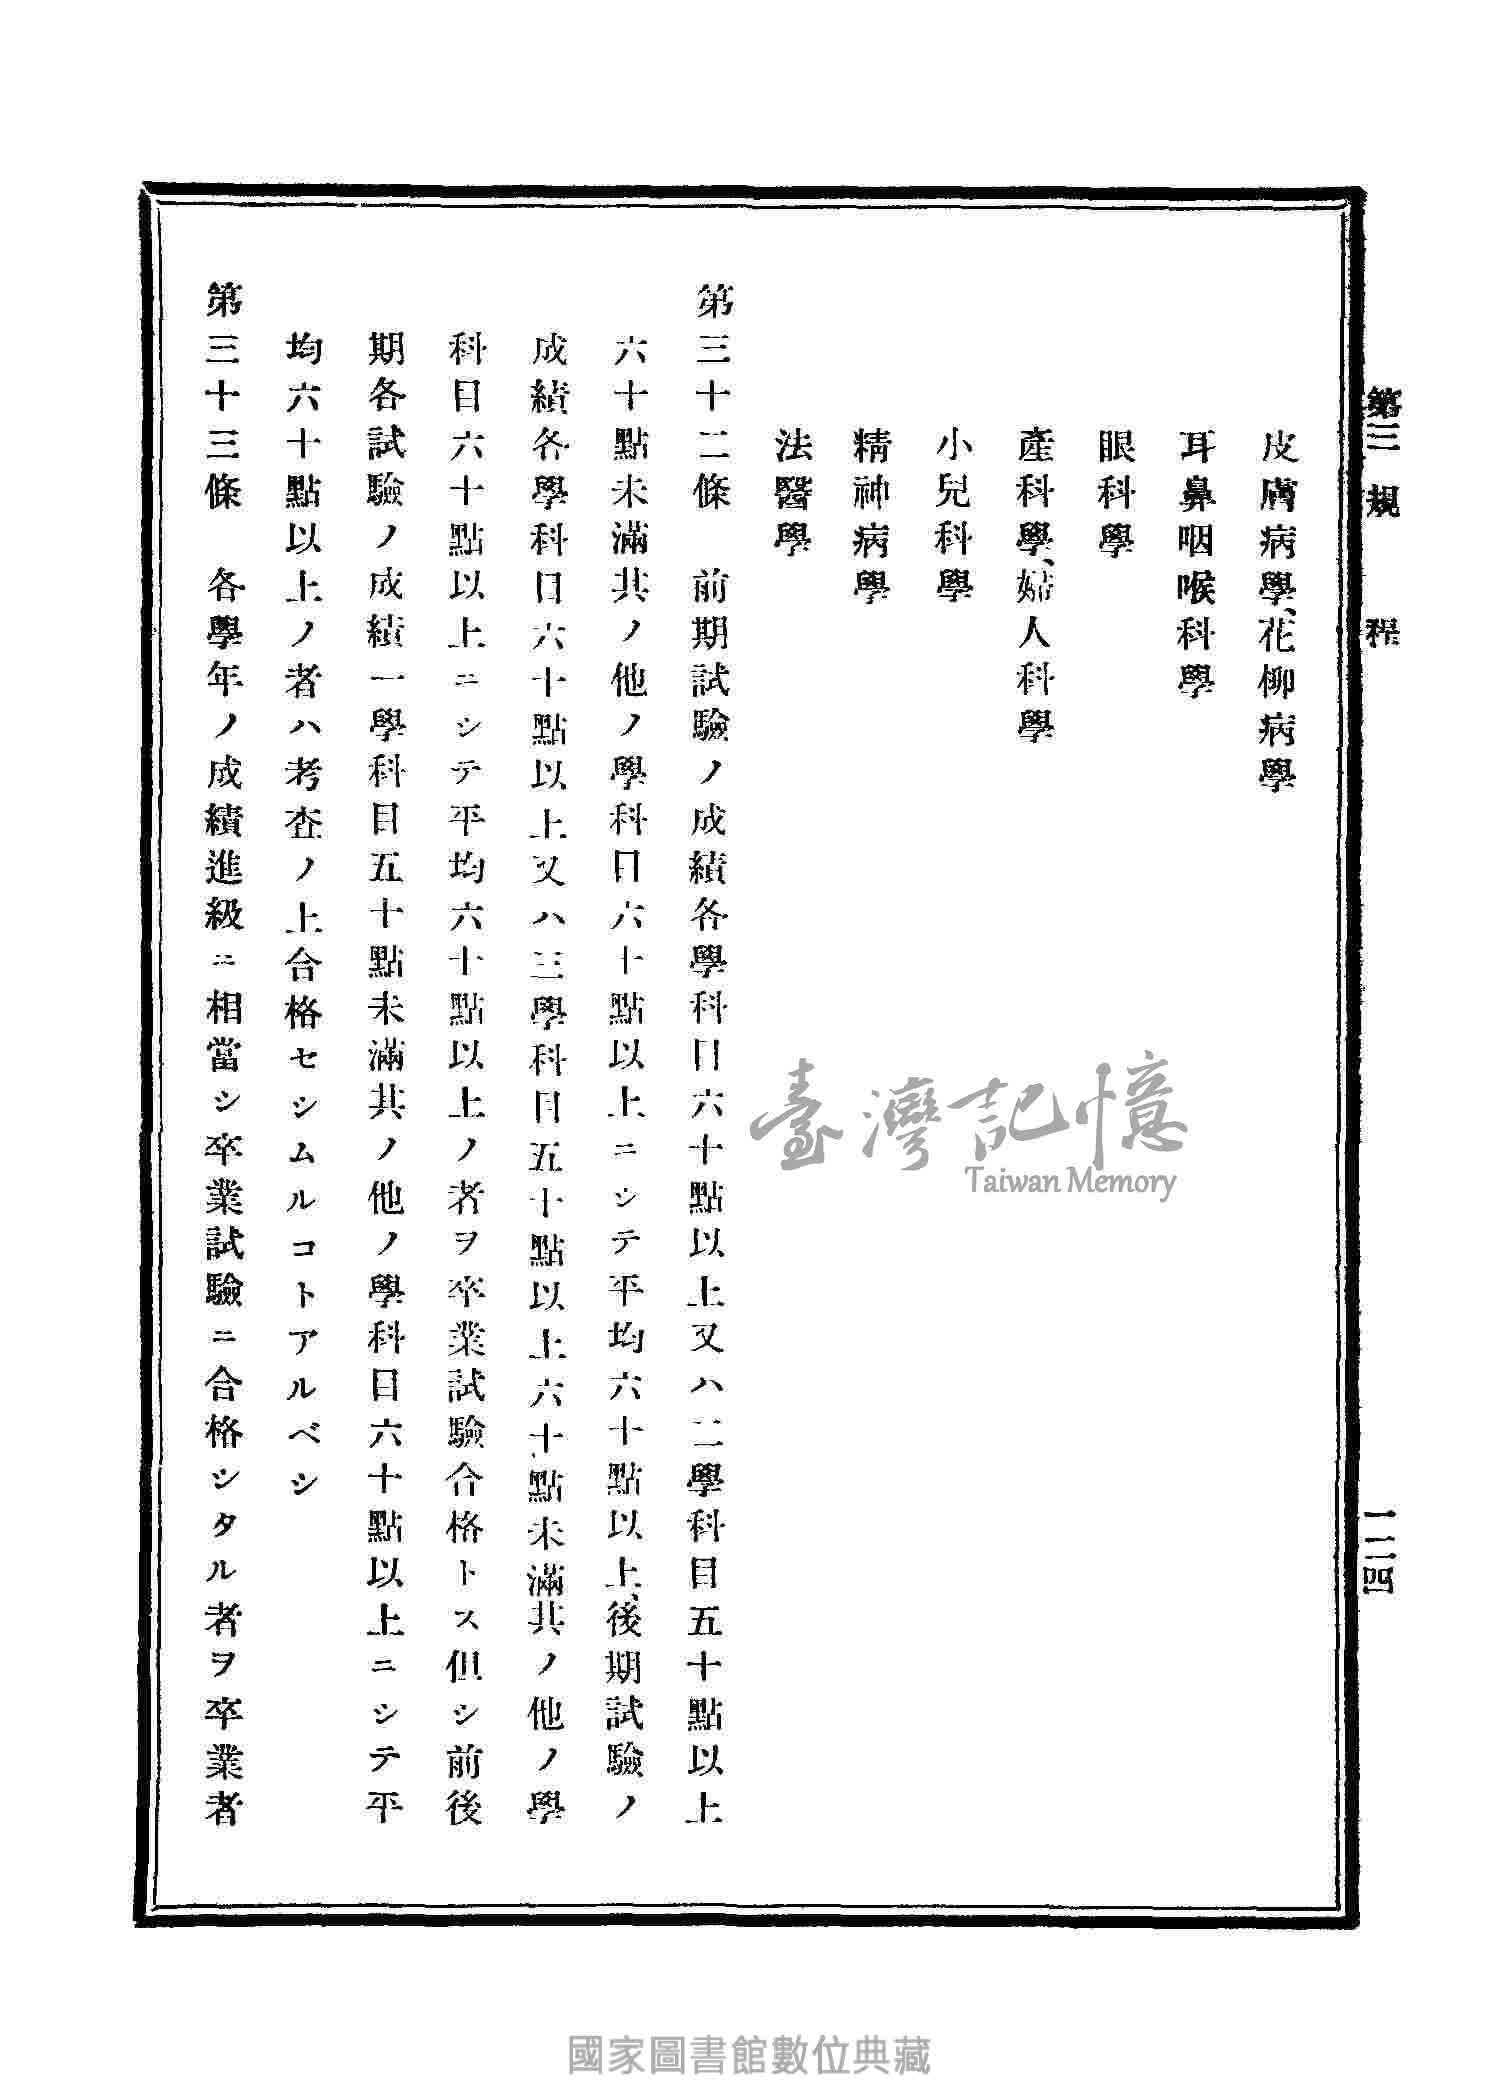 第三　規　程
一二四
皮膚病學、花柳病學
耳鼻咽喉科學
眼科學
產科學、婦人科學
小兒科學
精神病學
法醫學
第三十二條　前期試驗ノ成績各學科目六十點以上又ハ二學科目五十點以上
六十點未滿其ノ他ノ學科目六十點以上ニシテ平均六十點以上、後期試驗ノ
成績各學科目六十點以上又ハ三學科目五十點以上六十點未滿其ノ他ノ學
科目六十點以上ニシテ平均六十點以上ノ者ヲ卒業試驗合格トス但シ前後
期各試驗ノ成績一學科目五十點未滿其ノ他ノ學科目六十點以上ニシテ平
均六十點以上ノ者ハ考査ノ上合格セシムルコトアルベシ
第三十三條　各學年ノ成績進級ニ相當シ卒業試驗ニ合格シタル者ヲ卒業者
臺灣記憶
Taiwan Memory
國家圖書館數位典藏